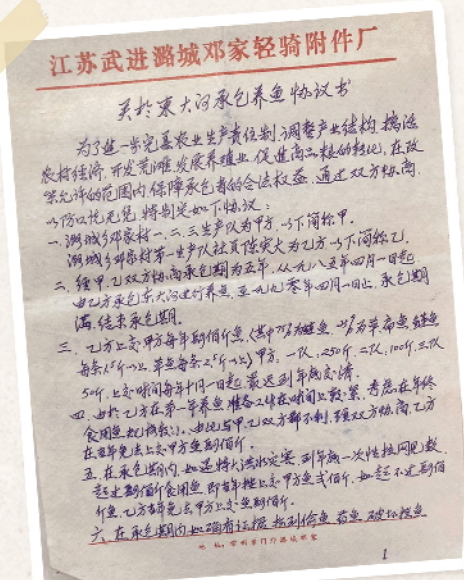 江苏武进潞城邓家轻骑附件厂
关于东大河承包养鱼协议书
为了进一步完善农业生产责任制，调整产业结构，搞活
农村经济，开发荒滩，发展养殖业，促进商品粮的转化，在政
策允许的范围内，保障承包者的合法权益，通过双方协商，
以防口说无凭，特制定如下协议：
一、潞城乡邓家村一、二、三生产队为甲方，以下简称甲。
潞城乡邓家村第一生产队社员陈宪大为乙方以下简称乙。
二、经甲、乙双方协商承包期为五年，从一九八五年四月一日起
由乙方承包东大河进行养鱼，至一九九零年四月一日止，承包期
满，结束承包期。
三、乙方上交甲方每年鱼佰斤鱼，（其中75%为鲢鱼
每条1.5斤以上，草鱼每条2.5斤以上）甲方，一队，250斤，二队，100斤，三队
50斤，上交时间每年十月一日起，最迟到年底交清。
四、由于乙方在第一年养鱼，准备工作在时间上较紧，考虑在年终
食用鱼规格较小，由此与甲、乙双方都不利，双方协商，乙方
在当年免去上交甲方鱼佰斤。
五、在承包期内，如遇特大洪水灾害，到年底一次性拉网见数，
超过佰斤食用鱼，即当年上交甲方鱼弍佰斤，如超不过佰
斤鱼，乙方当年免去甲方上交鱼佰斤。
六、在承包期内如确有证据抓到偷鱼、药鱼、破坏
1